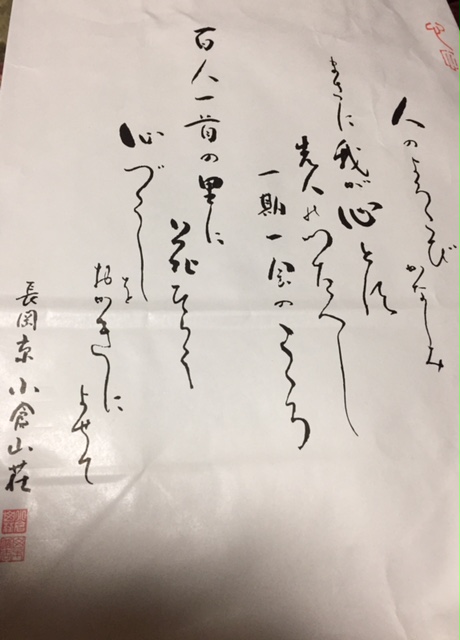 人のよろこび かなしみ
まさに我が心とす
先人のつたへし
一期一会のこころ
百人一首の里に
花ひらく
心づくし
を
おかきに
よせて
長岡京 小倉山荘